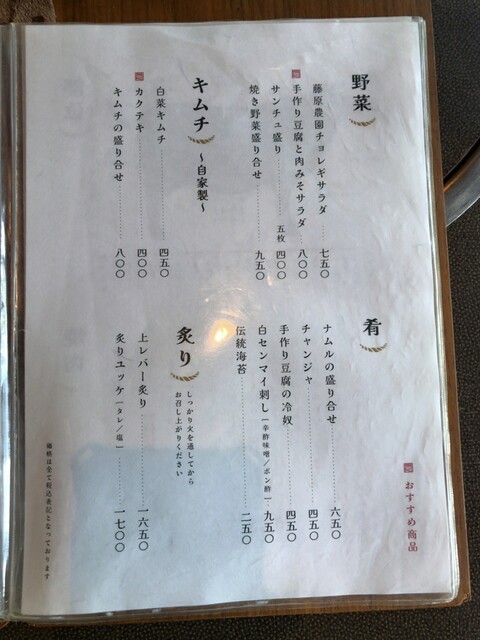 野菜
藤原農園チョレギサラダ 七五〇
手作り豆腐と肉みそサラダ 八〇〇
サンチュ盛り 五枚 四〇〇
焼き野菜盛り合せ 九五〇
キムチ 〜自家製〜
白菜キムチ 四五〇
カクテキ 四〇〇
キムチの盛り合せ 八〇〇
おすすめ商品
肴
ナムルの盛り合せ 六五〇
チャンジャ 四五〇
手作り豆腐の冷奴 四五〇
白センマイ刺し(辛酢味噌/ポン酢) 九五〇
伝統海苔 二五〇
炙り
しっかり火を通してから
お召し上がりください
上レバー炙り 一六五〇
炙りユッケ(タレ/塩) 一七〇〇
価格は全て税込表記となっております